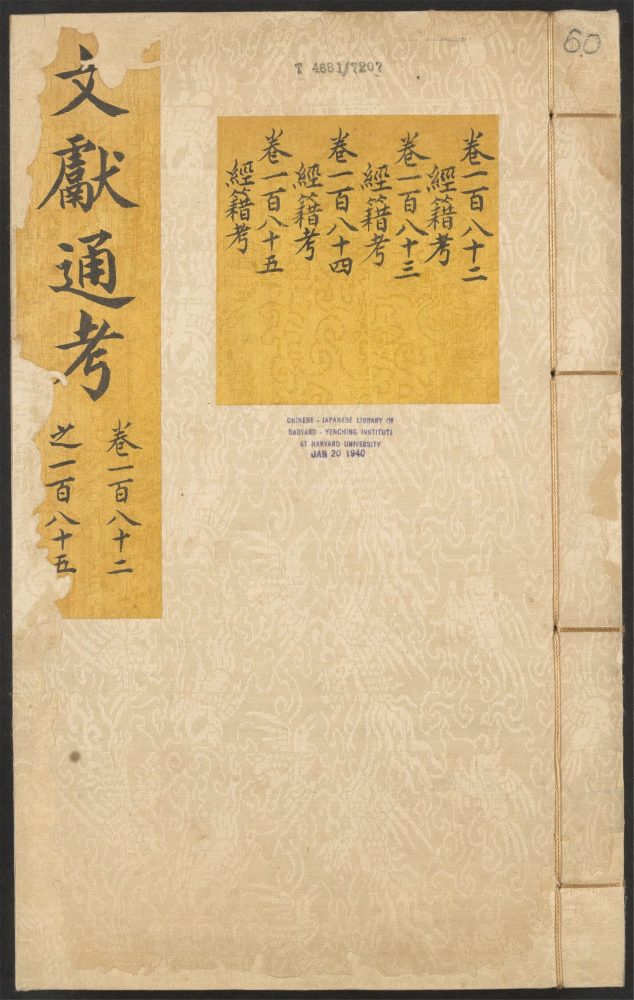 文獻通考
卷一百八十二
之一百八十五
T 4681/7207
60
卷一百八十二
經籍考
卷一百八十三
經籍考
卷一百八十四
經籍考
卷一百八十五
經籍考
CHINESE - JAPANESE LIBRARY OF
HARVARD - YENCHING INSTITUTE
AT HARVARD UNIVERSITY
JAN 20 1940